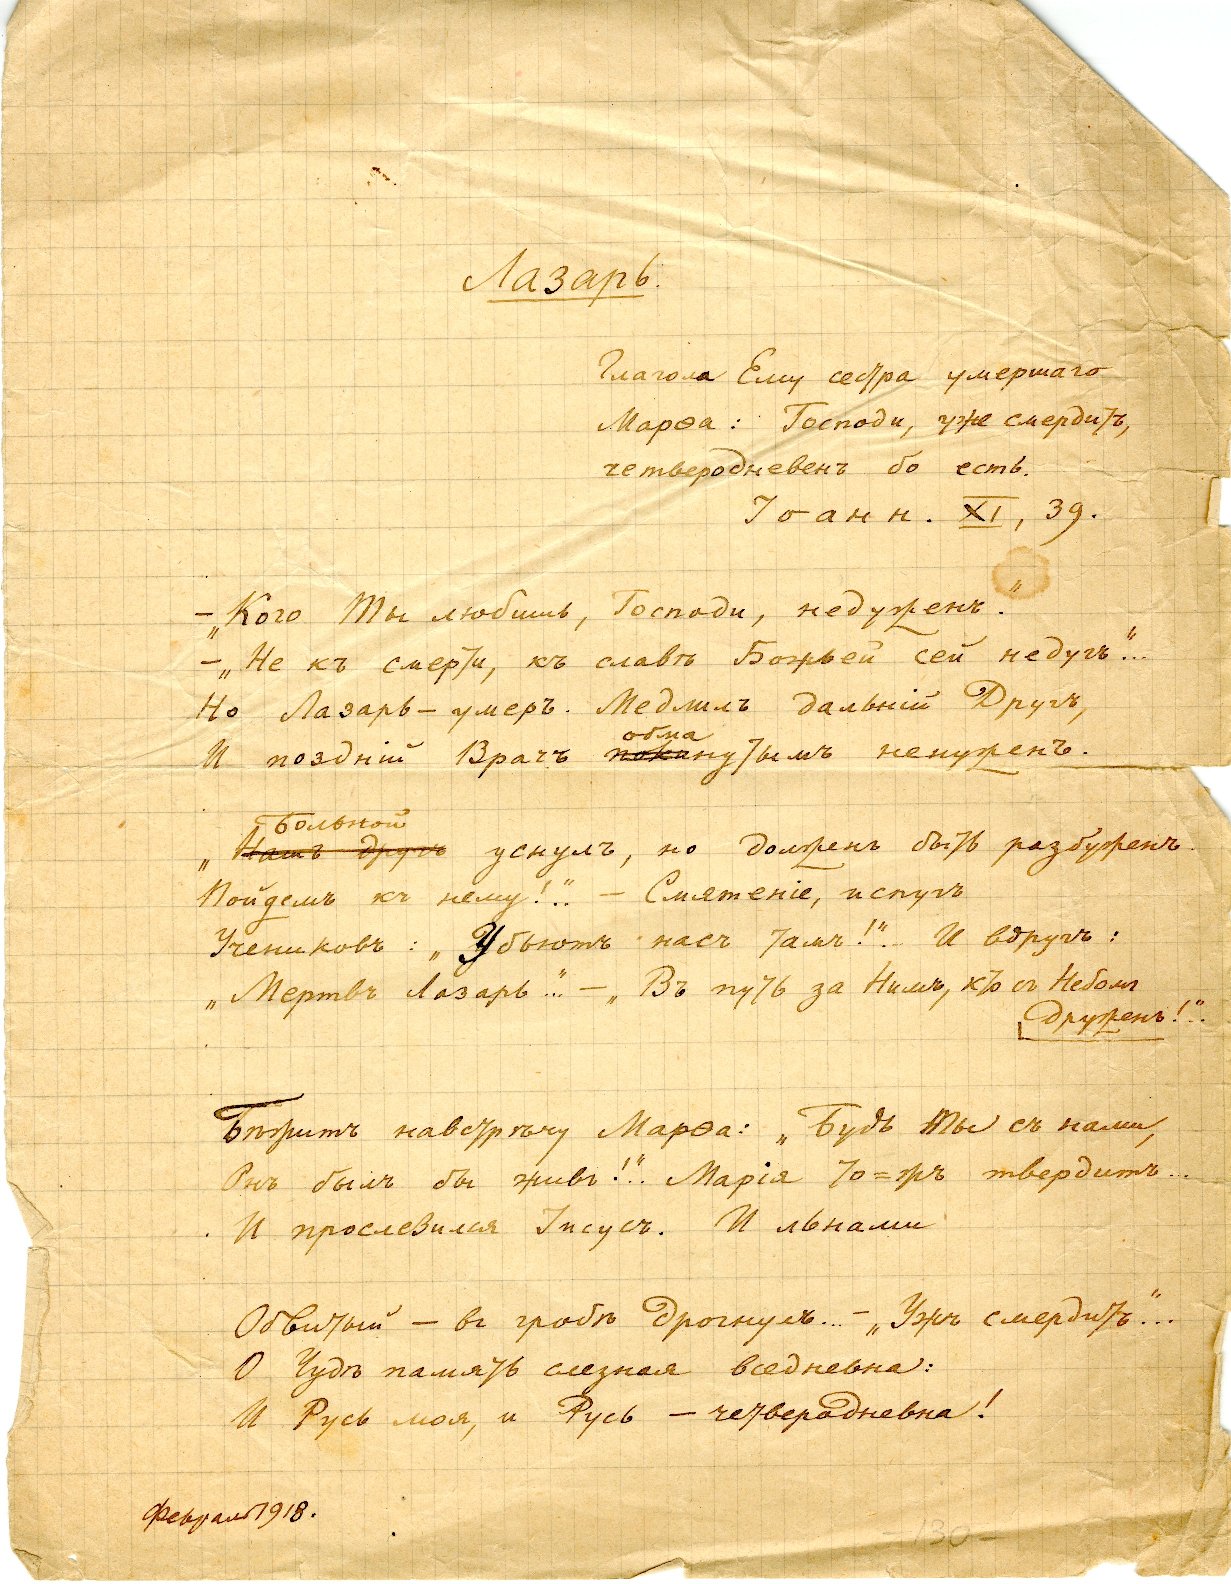 Лазарь.
Глагола Ему сестра умершаго
Марѳа: Господи, уже смердитъ,
четверодневенъ бо есть.
Іоанн. XI, 39.
– „Кого Ты любишь, Господи, недуженъ.“
– „Не къ смерти, къ славѣ Божьей сей недугъ“...
Но Лазарь – умеръ. Медлилъ дальній Другъ,
обма
И поздній Врачъ покинутымъ ненуженъ.
Больной
„Нашъ другъ уснулъ, но долженъ быть разбуженъ.
Пойдемъ къ нему!“.. – Смятеніе, испугъ
Учениковъ: „Убьютъ насъ тамъ!“.. И вдругъ:
„Мертвъ Лазарь“... – „Въ путь за Нимъ, кто съ Небомъ
друженъ!“..
Бѣжитъ навстрѣчу Марѳа: „Будь Ты съ нами,
Онъ былъ бы живъ!“.. Марія то=жъ твердитъ..
И прослезился Іисусъ. И льнами
Обвитый – въ гробѣ дрогнулъ... – „Ужъ смердитъ“...
О Чудѣ память слезная вседневна:
И Русь моя, и Русь – четверодневна!
Февраль 1918.
– 130 –